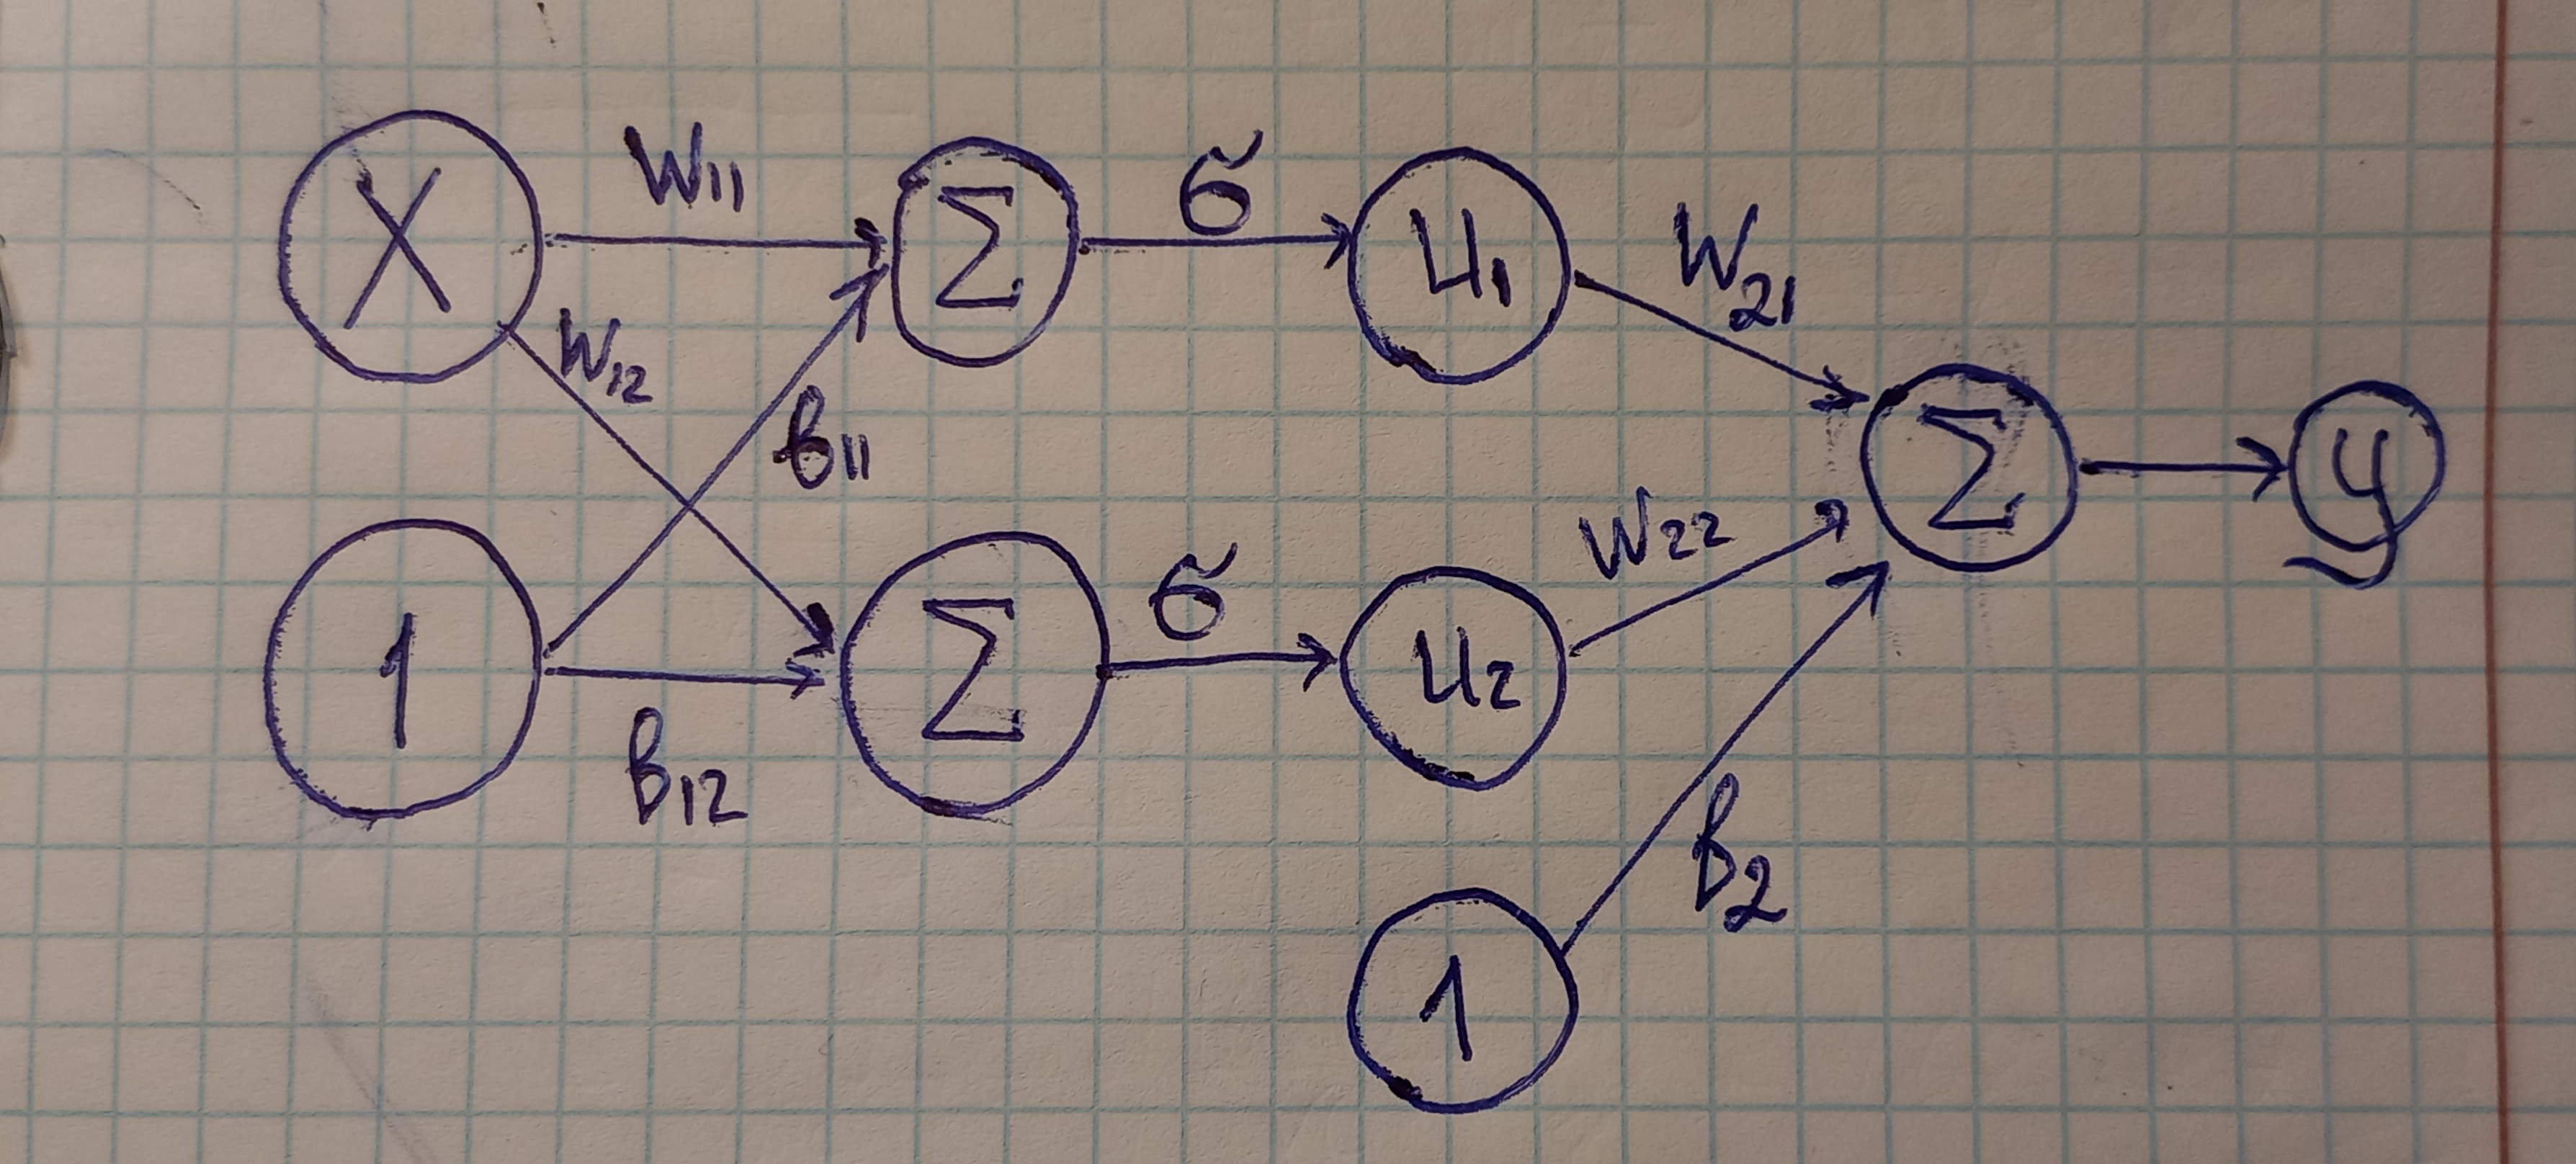 X W11 Σ σ u1 W21
W12 b11 Σ y
1 b12 Σ σ u2 W22
1 b2